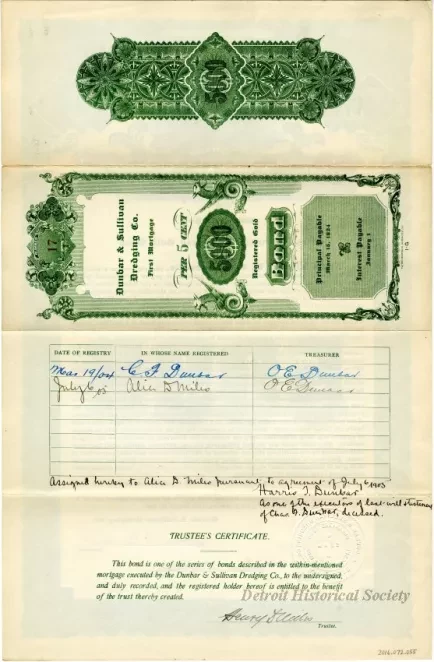 5000
17
Dunbar & Sullivan
Dredging Co.
First Mortgage
5 PER CENT
5000
Registered Gold
Bond
Principal Payable
March 15, 1924
Interest Payable
January 1
DATE OF REGISTRY IN WHOSE NAME REGISTERED TREASURER
Mar 19/04 C. F. Dunbar O E Dunbar
July 6, 05 Alice D Milis O E Dunbar
Assigned hereby to Alice D. Milis pursuant to agreement of July 6 1905
Harris T. Dunbar
As one of the executors of last will & testament
of Chas. F. Dunbar, deceased.
TRUSTEE'S CERTIFICATE.
This bond is one of the series of bonds described in the within-mentioned
mortgage executed by the Dunbar & Sullivan Dredging Co., to the undersigned,
and duly recorded, and the registered holder hereof is entitled to the benefit
of the trust thereby created.
Henry
Trustee.
Detroit Historical Society